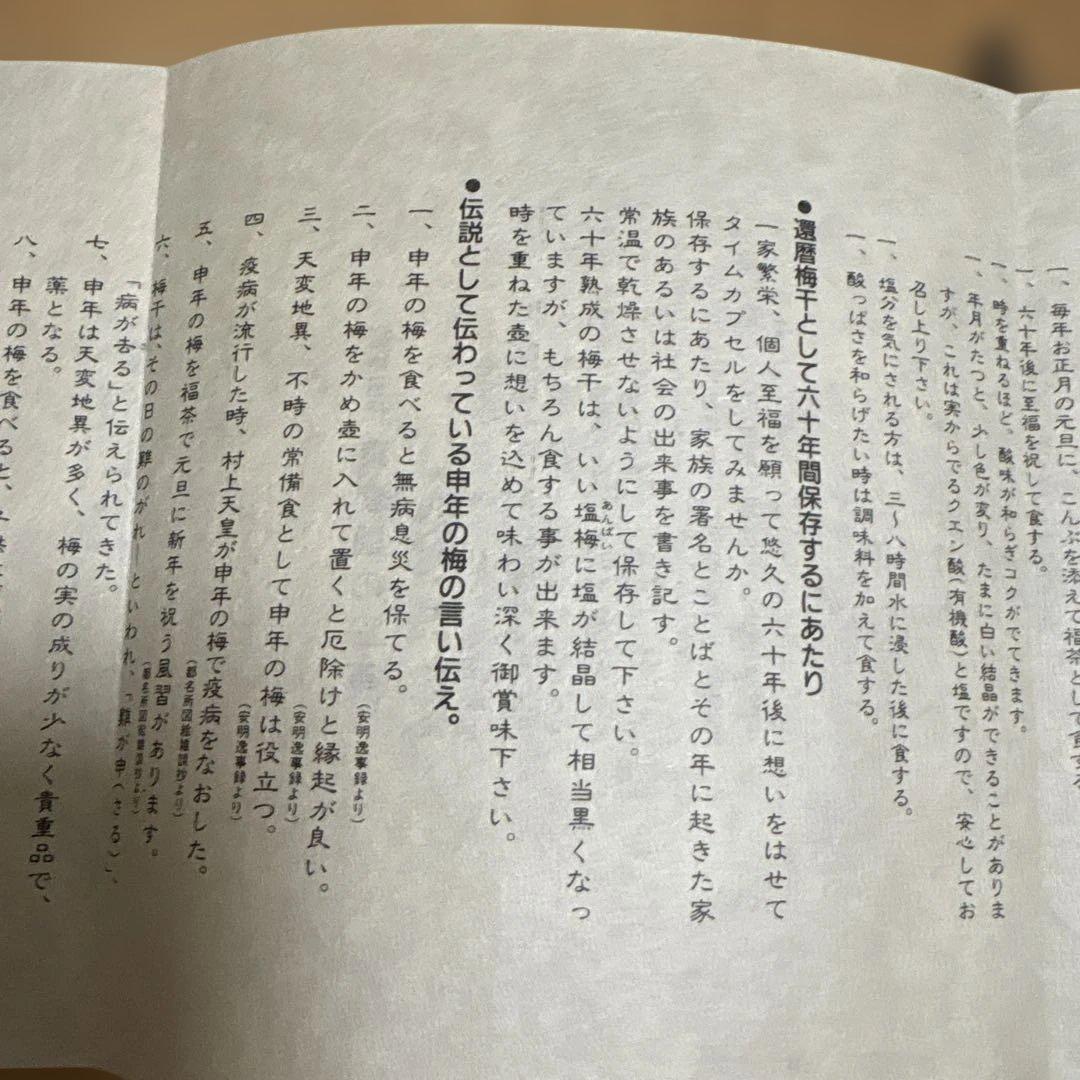 一、毎年お正月の元旦に、こんぶを添えて福茶として食する。
一、六十年後に至福を祝して食する。
一、時を重ねるほど。酸味が和らぎコクがでてきます。
一、年月がたつと、少し色が変り、たまに白い結晶ができることがありま
すが、これは実からでるクエン酸(有機酸)と塩ですので、安心してお
召し上り下さい。
一、塩分を気にされる方は、三〜八時間水に浸した後に食する。
一、酸っぱさを和らげたい時は調味料を加えて食する。
●還暦梅干として六十年間保存するにあたり
一家繁栄、個人至福を願って悠久の六十年後に想いをはせて
タイムカプセルをしてみませんか。
保存するにあたり、家族の署名とことばとその年に起きた家
族のあるいは社会の出来事を書き記す。
常温で乾燥させないようにして保存して下さい。
六十年熟成の梅干は、いい塩梅に塩が結晶して相当黒くなっ
あんばい
ていますが、もちろん食する事が出来ます。
時を重ねた壺に想いを込めて味わい深く御賞味下さい。
●伝説として伝わっている申年の梅の言い伝え。
一、申年の梅を食べると無病息災を保てる。
(安明逸事録より)
二、申年の梅をかめ壺に入れて置くと厄除けと縁起が良い。
(安明逸事録より)
三、天変地異、不時の常備食として申年の梅は役立つ。
(安明逸事録より)
四、疫病が流行した時、村上天皇が申年の梅で疫病をなおした。
(都名所図絵雑談抄より)
五、申年の梅を福茶で元旦に新年を祝う風習があります。
(都名所図絵雑談抄より)
六、梅干は、その日の難のがれーといわれ、「難が申(さる)」、
「病が去る」と伝えられてきた。
七、申年は天変地異が多く、梅の実の成りが少なく貴重品で、
薬となる。
八、申年の梅を食べると、